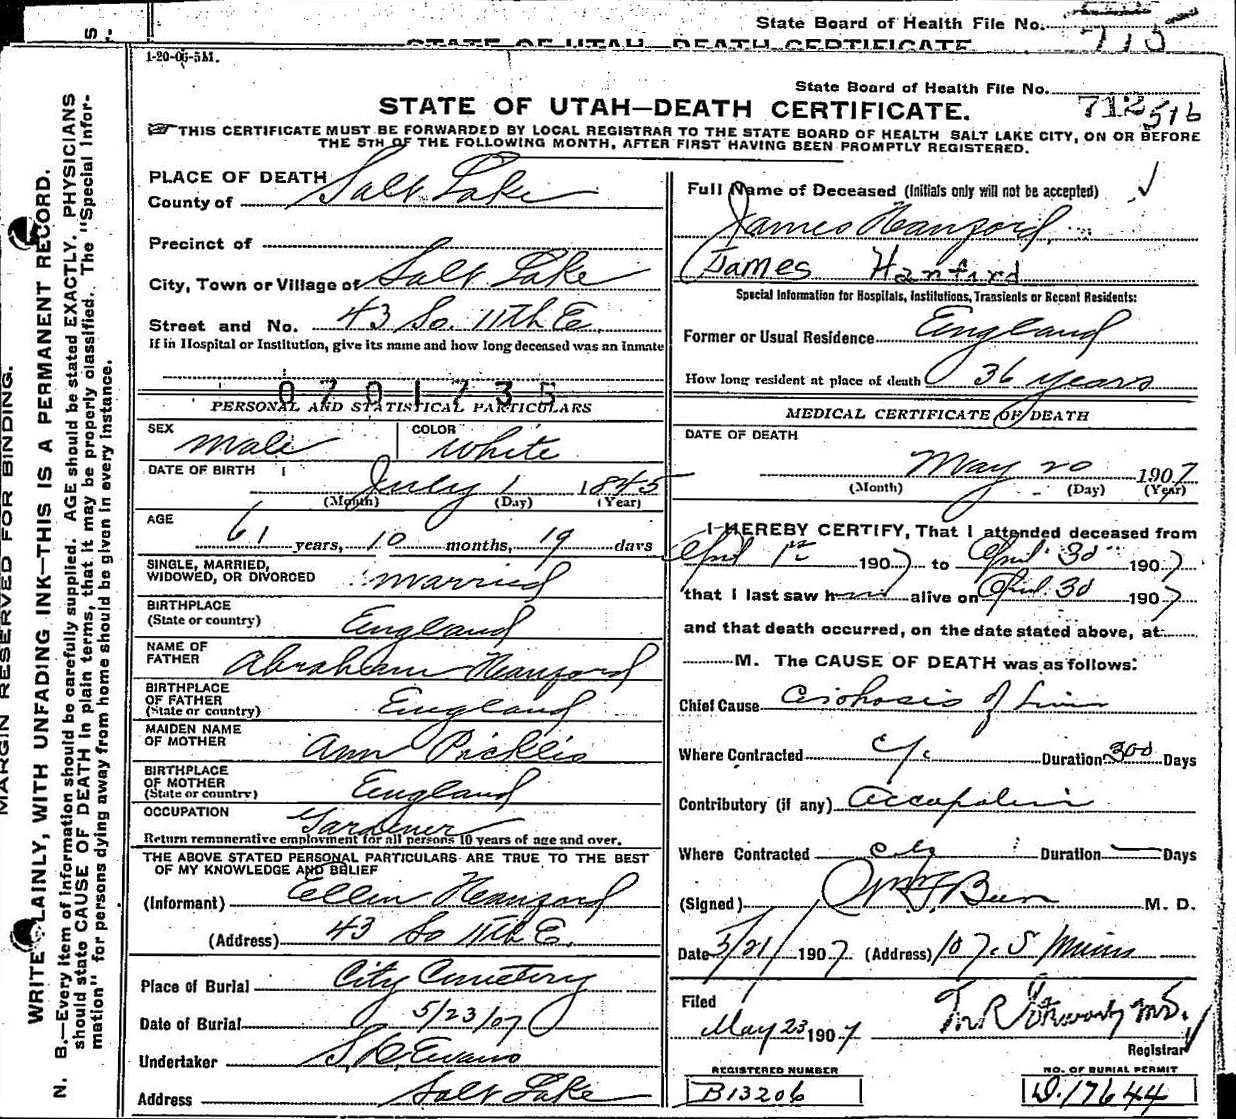 State Board of Health File No. 715
STATE OF UTAH—DEATH CERTIFICATE
1-20-05-5M.
State Board of Health File No. 712 516
STATE OF UTAH—DEATH CERTIFICATE.
☞THIS CERTIFICATE MUST BE FORWARDED BY LOCAL REGISTRAR TO THE STATE BOARD OF HEALTH SALT LAKE CITY, ON OR BEFORE
THE 5TH OF THE FOLLOWING MONTH, AFTER FIRST HAVING BEEN PROMPTLY REGISTERED.
MARGIN RESERVED FOR BINDING.
WRITE PLAINLY, WITH UNFADING INK—THIS IS A PERMANENT RECORD.
N. B.—Every item of information should be carefully supplied. AGE should be stated EXACTLY. PHYSICIANS
should state CAUSE OF DEATH in plain terms, that it may be properly classified. The "Special Infor-
mation" for persons dying away from home should be given in every instance.
PLACE OF DEATH
County of Salt Lake
Precinct of
City, Town or Village of Salt Lake
Street and No. 43 So. 11th E.
If in Hospital or Institution, give its name and how long deceased was an inmate
0701735
PERSONAL AND STATISTICAL PARTICULARS
SEX male COLOR white
DATE OF BIRTH July 1 1845
(Month) (Day) (Year)
AGE
61 years, 10 months, 19 days
SINGLE, MARRIED,
WIDOWED, OR DIVORCED married
BIRTHPLACE
(State or country) England
NAME OF
FATHER Abraham Hanford
BIRTHPLACE
OF FATHER
(State or country) England
MAIDEN NAME
OF MOTHER Ann Picklis
BIRTHPLACE
OF MOTHER
(State or country) England
OCCUPATION
Gardener
Return remunerative employment for all persons 10 years of age and over.
THE ABOVE STATED PERSONAL PARTICULARS ARE TRUE TO THE BEST
OF MY KNOWLEDGE AND BELIEF
(Informant) Ellen Hanford
(Address) 43 So 11th E.
Place of Burial City Cemetery
Date of Burial 5/23/07
Undertaker S. D. Evans
Address Salt Lake
Full Name of Deceased (Initials only will not be accepted)
James Hanford.
James Hanford
Special Information for Hospitals, Institutions, Transients or Recent Residents:
Former or Usual Residence England
How long resident at place of death 36 years
MEDICAL CERTIFICATE OF DEATH
DATE OF DEATH
May 20 1907
(Month) (Day) (Year)
I HEREBY CERTIFY, That I attended deceased from
April 1st 1907 to April 30 1907
that I last saw him alive on April 30 1907
and that death occurred, on the date stated above, at
M. The CAUSE OF DEATH was as follows:
Chief Cause Cirohosis of Liver
Where Contracted Duration 300 Days
Contributory (if any)
Where Contracted City Duration — Days
(Signed) M. D.
Date 5/21/1907 (Address) 107. S Main
Filed
May 23 1907
Registrar
REGISTERED NUMBER NO. OF BURIAL PERMIT
B13206 D.17644